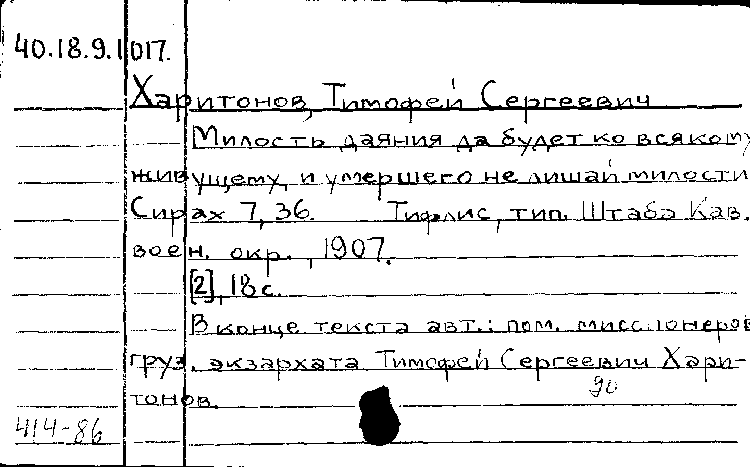 40.18.9.1017.
Харитонов, Тимофей Сергеевич
Милость даяния да будет ко всякому
живущему, и умершего не лишай милости
Сирах 7, 36. Тифлис, тип. Штаба Кав.
воен. окр., 1907.
[2], 18 с.
В конце текста авт.: пом. миссионеров
груз. экзархата Тимофей Сергеевич Хари-
тонов.
90
414-86